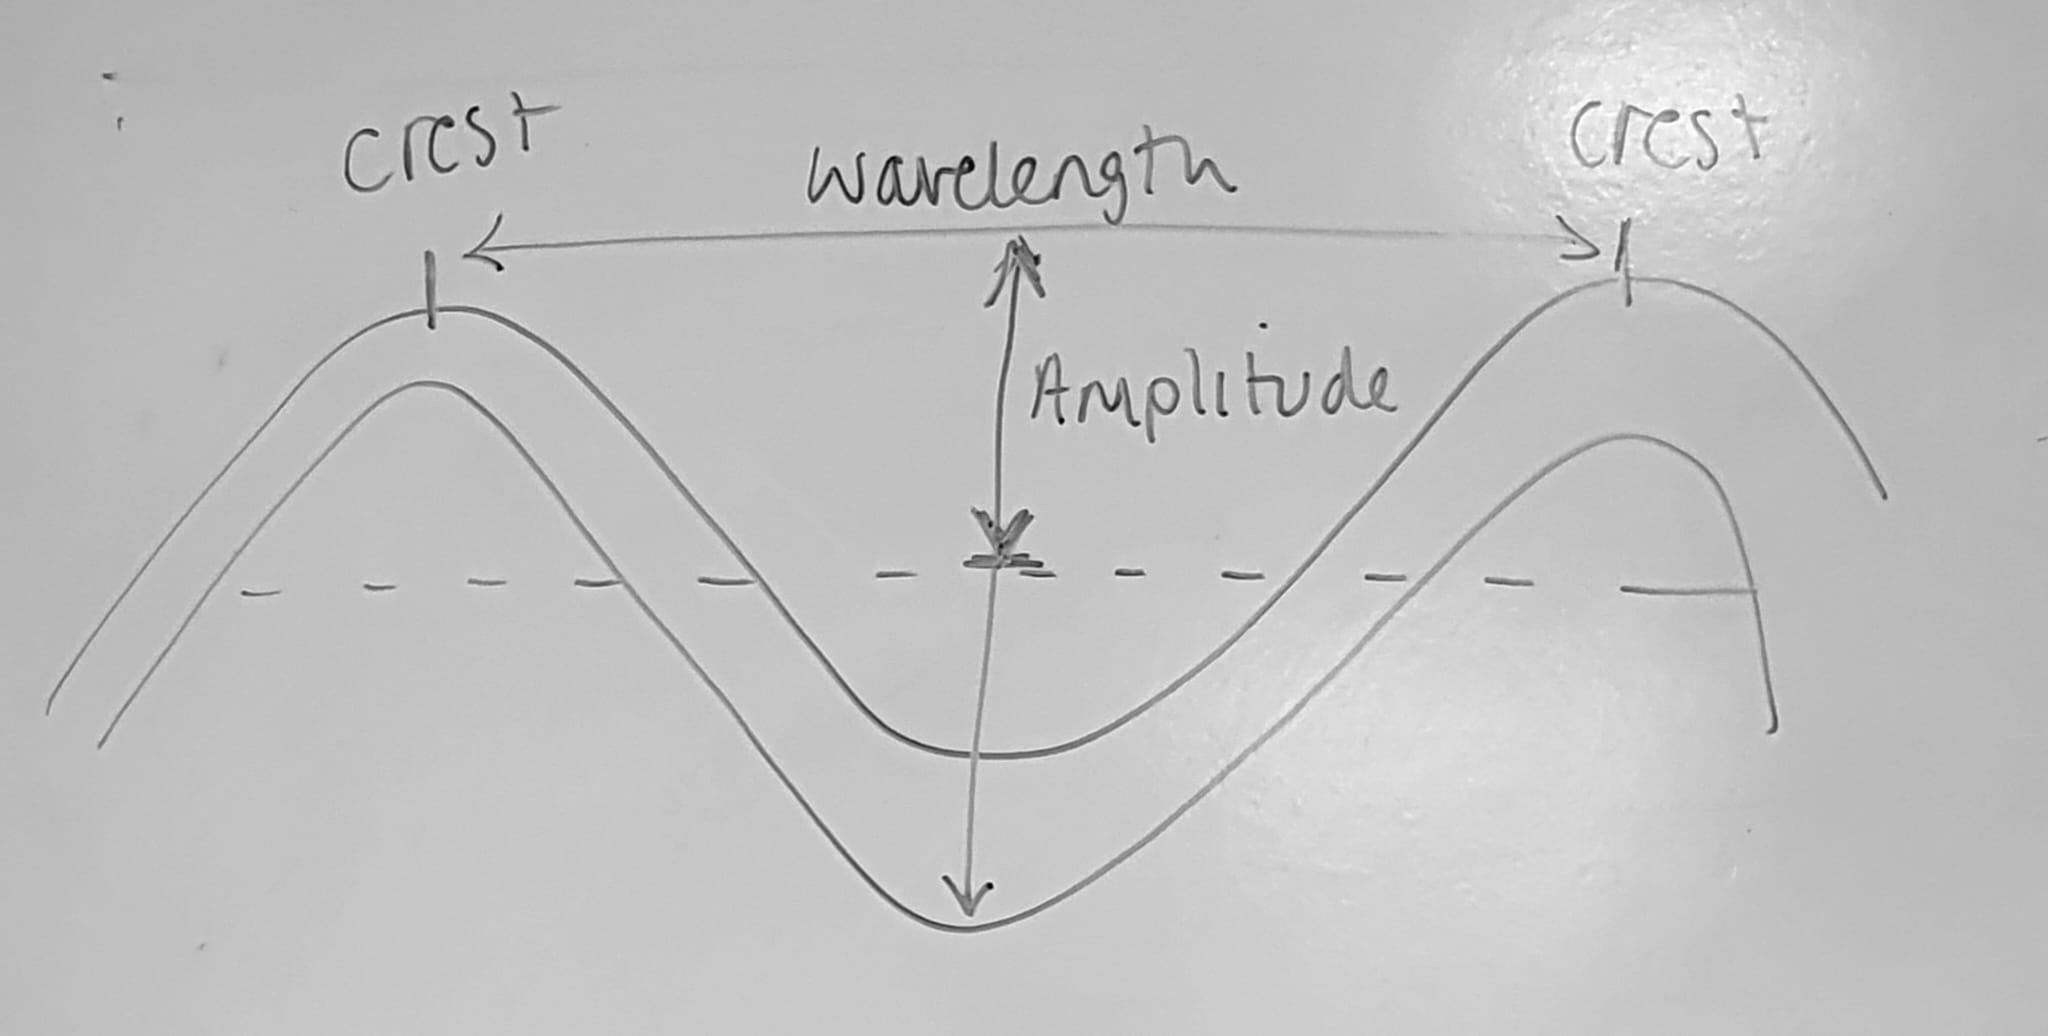 crest
wavelength
crest
Amplitude